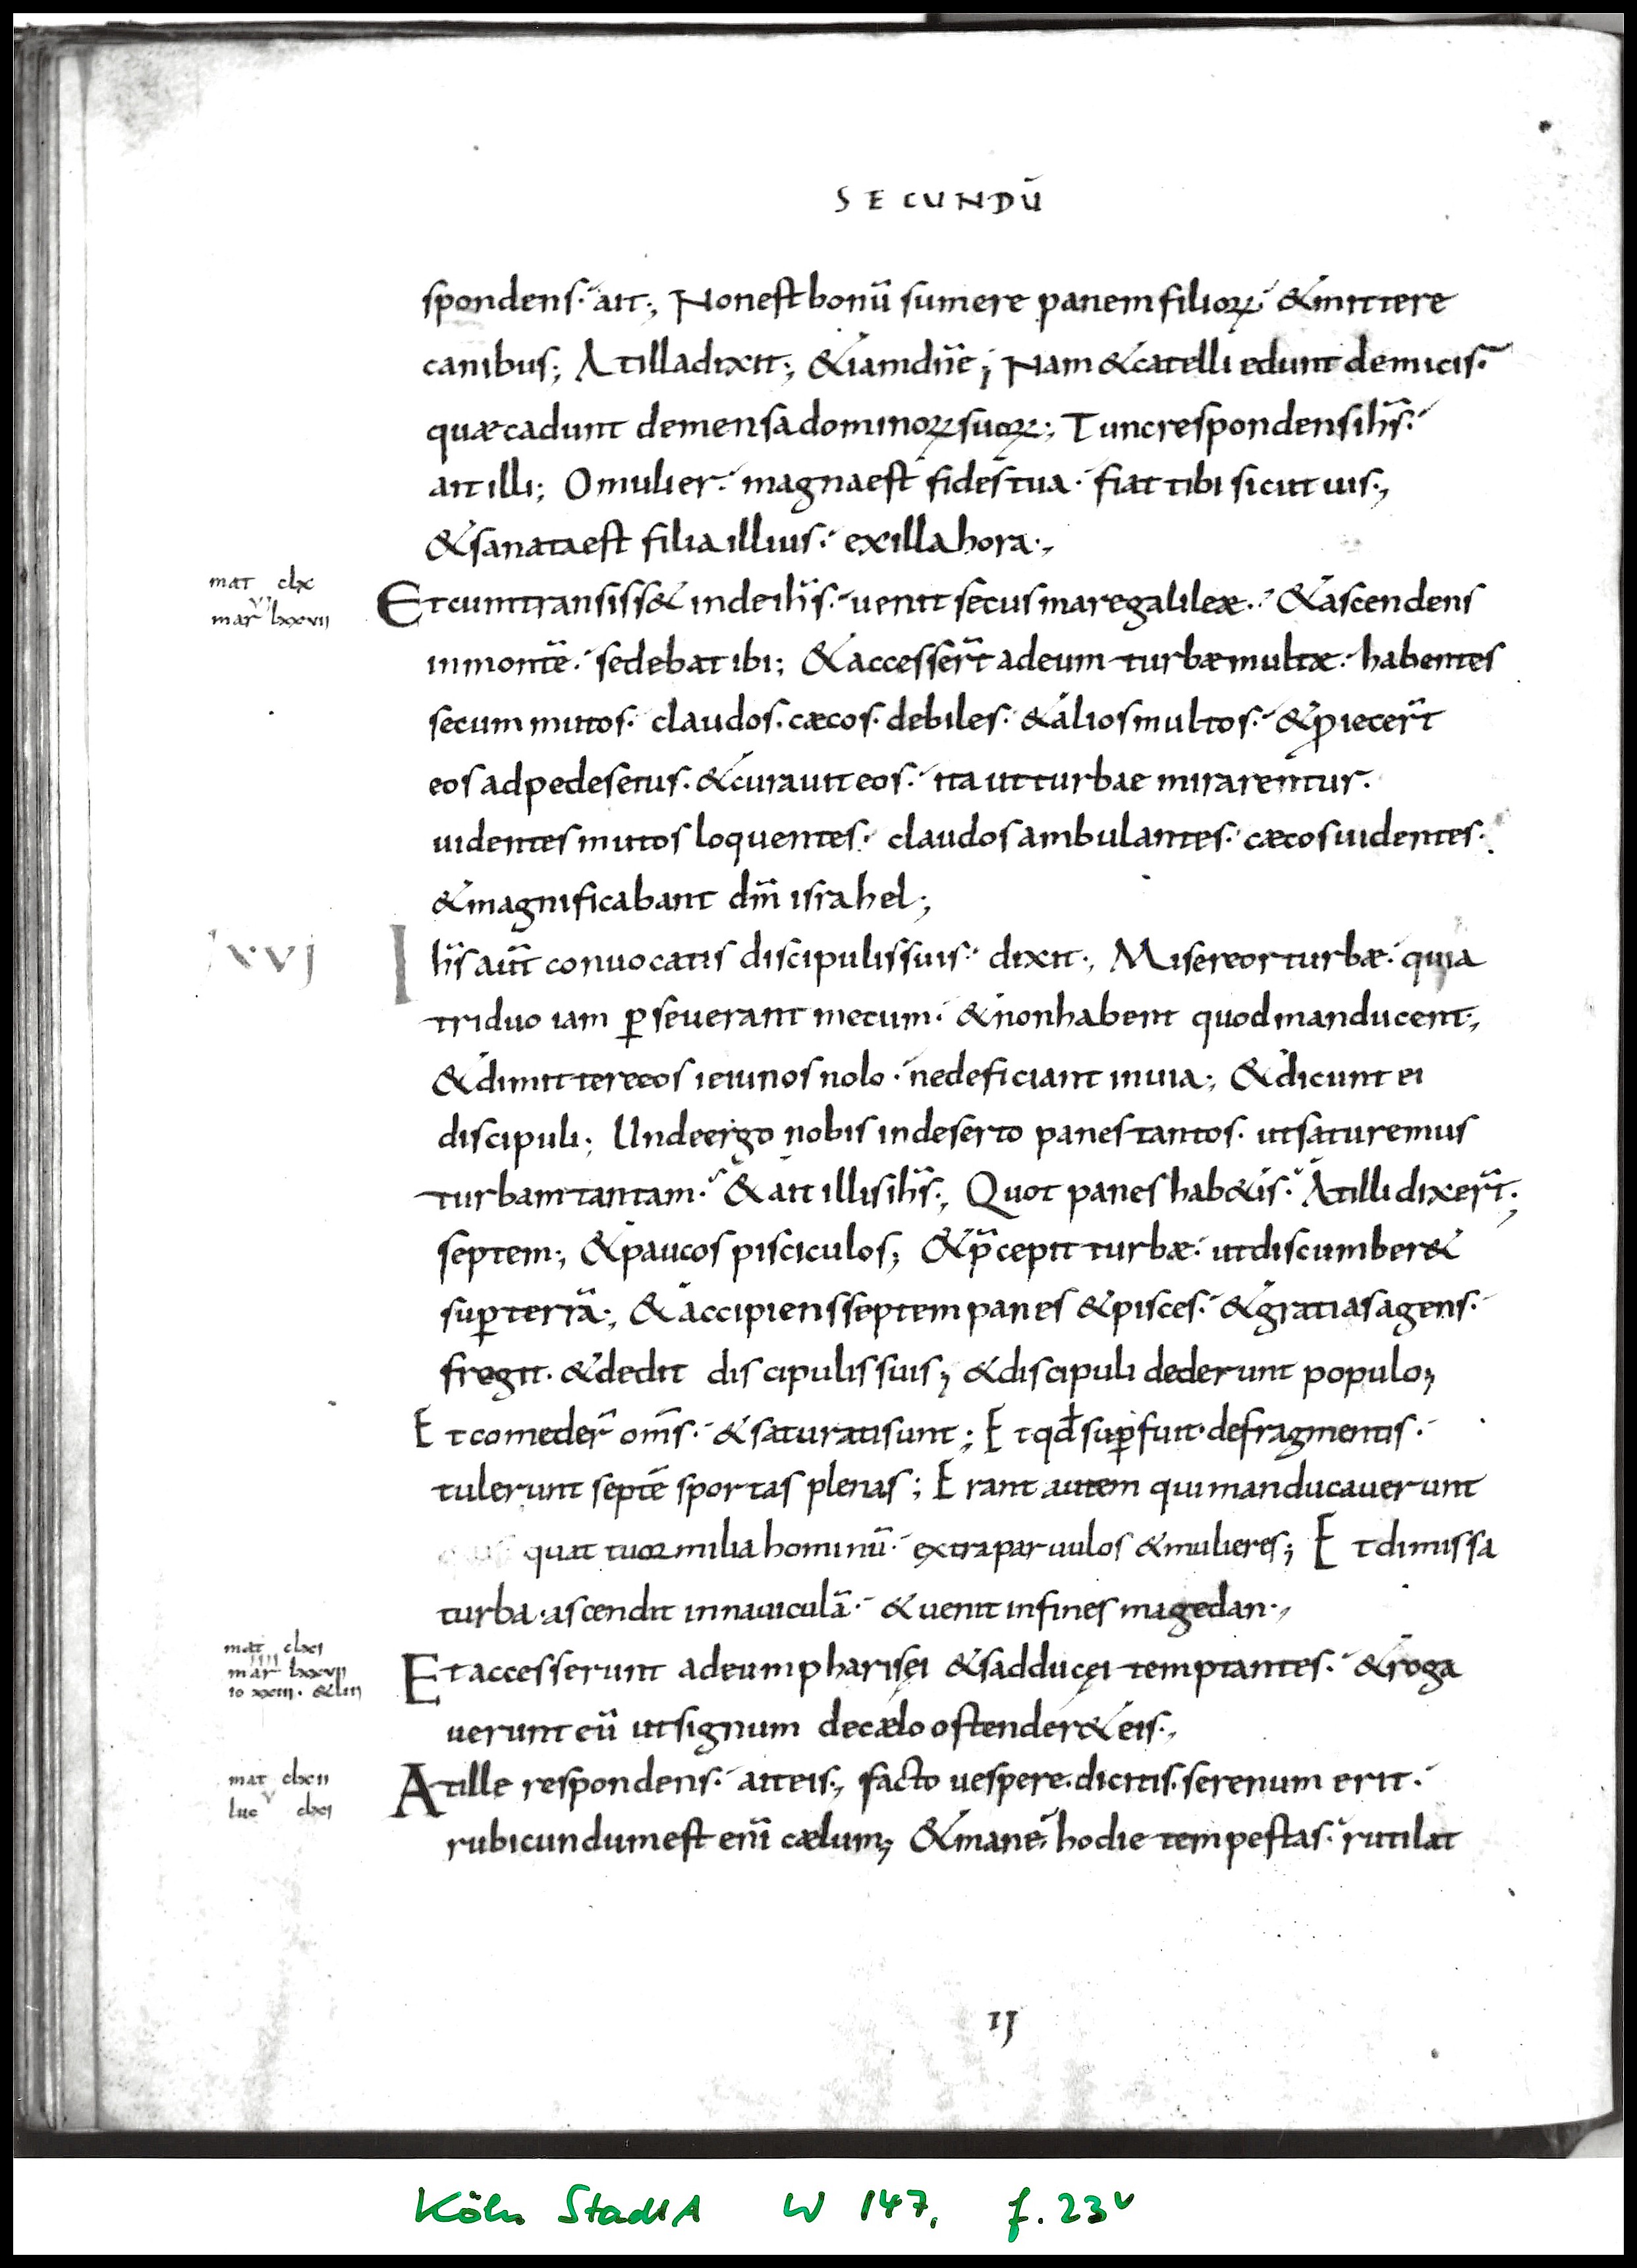 SECUNDŪ
spondens. ait; Non est bonū sumere panem filioꝝ. & mittere
canibus; At illa dixit; & iam dn̄e; Nam & catelli edunt de micis.
quæ cadunt de mensa dominoꝝ suoꝝ; Tunc respondens ih̄s.
ait illi; O mulier. magna est fides tua. fiat tibi sicut uis;
& sanata est filia illius. ex illa hora;
mat clx
mar vi lxxvii
Et cum transiss& inde ih̄s. uenit secus mare galileæ. & ascendens
in montē. sedebat ibi; & accesser̄t ad eum turbæ multæ. habentes
secum mutos. claudos. cæcos. debiles. & alios multos. & ꝓiecer̄t
eos ad pedes eius. & curauit eos. ita ut turbae mirarentur.
uidentes mutos loquentes. claudos ambulantes. cæcos uidentes.
& magnificabant dm̄ israhel;
xvj
Ih̄s aut̄ conuocatis discipulis suis. dixit; Misereor turbæ. quia
triduo iam ꝑseuerant mecum. & non habent quod manducent;
& dimittere eos ieiunos nolo. ne deficiant in uia; & dicunt ei
discipuli; Unde ergo nobis in deserto panes tantos. ut saturemus
turbam tantam. & ait illis ih̄s; Quot panes hab&is. At illi dixer̄t;
septem; & paucos pisciculos; & p̄cepit turbæ. ut discumber&
suꝑ terrā; & accipiens septem panes & pisces. & gratias agens.
fregit. & dedit discipulis suis; & discipuli dederunt populo;
Et comeder̄ om̄s. & saturati sunt; Et qd̄ suꝑfuit. de fragmentis.
tulerunt septē sportas plenas; Erant autem qui manducauerunt
quattuor milia hominū. extra paruulos & mulieres; Et dimissa
turba. ascendit in nauiculā. & uenit in fines magedan;
mat clxi
mar iiii lxxvii
io xxiii. & liii
Et accesserunt ad eum pharisęi & sadducęi temptantes. & roga
uerunt eū ut signum de cælo ostender& eis;
mat clxii
luc v clxi
At ille respondens. ait eis; facto uespere. dicitis. serenum erit.
rubicundum est eni̅ cælum; & mane. hodie tempestas. rutilat
IJ
Köln StadtA W 147, f. 23v